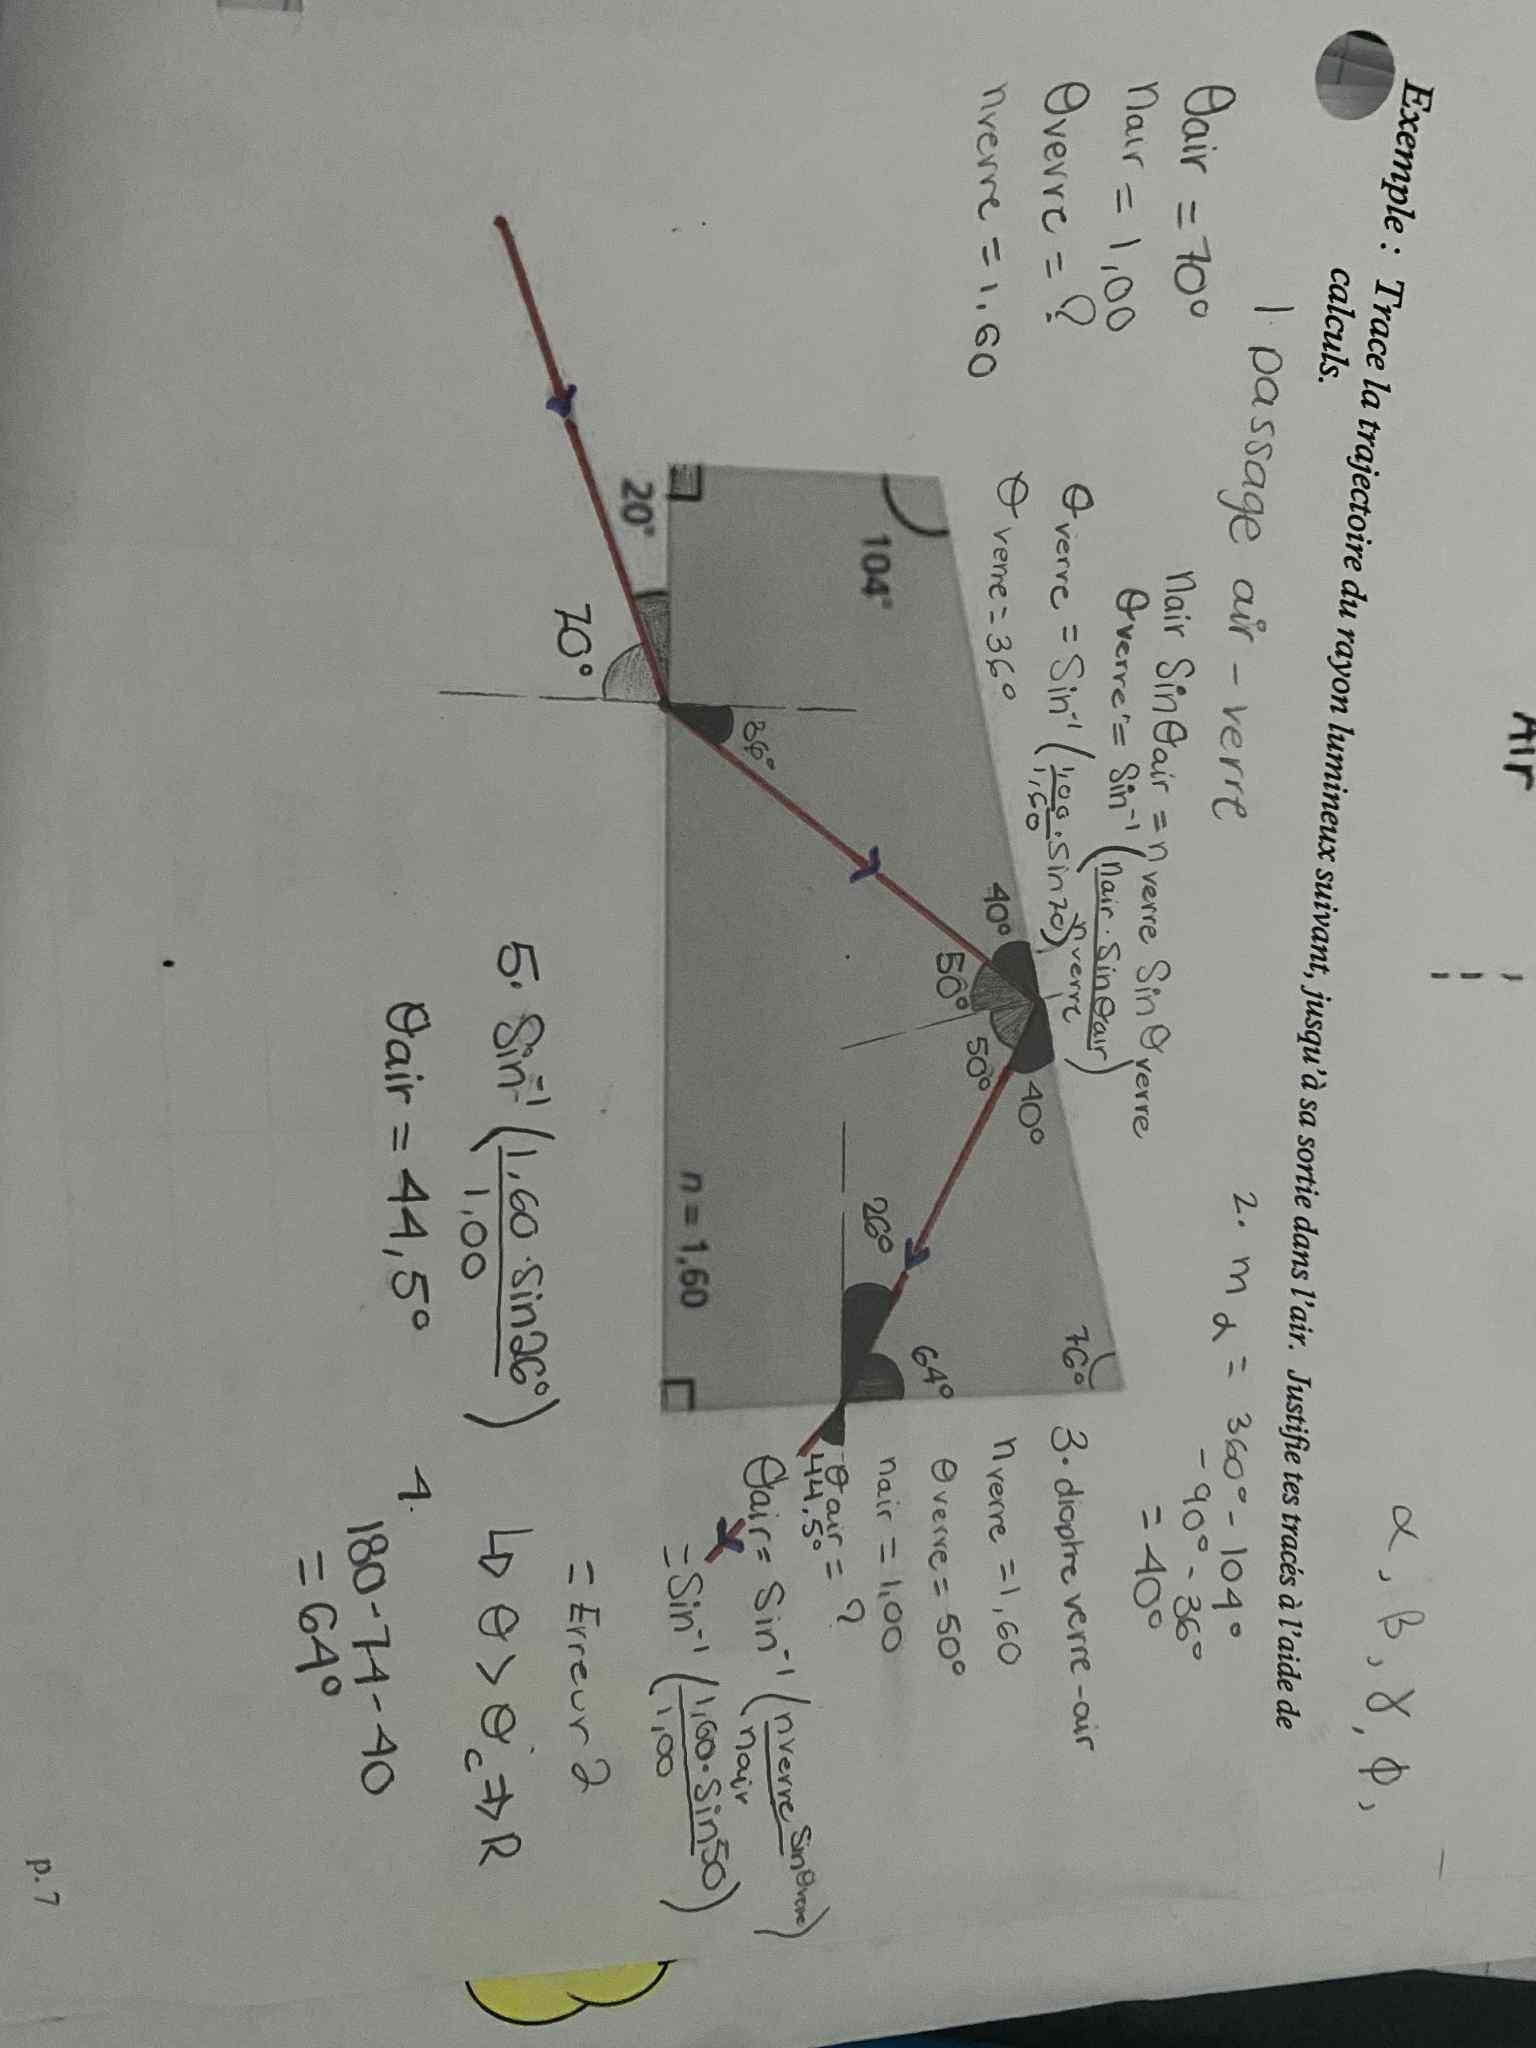 Air
α, β, γ, Φ,
Exemple : Trace la trajectoire du rayon lumineux suivant, jusqu'à sa sortie dans l'air. Justifie tes tracés à l'aide de
calculs.
1. passage air - verre
θair = 70°
nair = 1,00
θverre = ?
nverre = 1,60
nair Sinθair = nverre Sinθverre
θverre = Sin⁻¹ (nair · Sinθair / nverre)
θverre = Sin⁻¹ (1,00 · Sin70 / 1,60)
θverre = 36°
2. m α = 360° - 104°
- 90° - 36°
= 40°
104°
20°
70°
36°
40°
50°
50°
40°
26°
64°
76°
n = 1,60
3. dioptre verre - air
nverre = 1,60
θverre = 50°
nair = 1,00
θair = ?
44,5°
θair = Sin⁻¹ (nverre Sinθverre / nair)
= Sin⁻¹ (1,60 · Sin50 / 1,00)
= Erreur 2
↳ θ > θc ⇒ R
4. 180 - 74 - 40
= 64°
5. Sin⁻¹ (1,60 · Sin26° / 1,00)
θair = 44,5°
p. 7